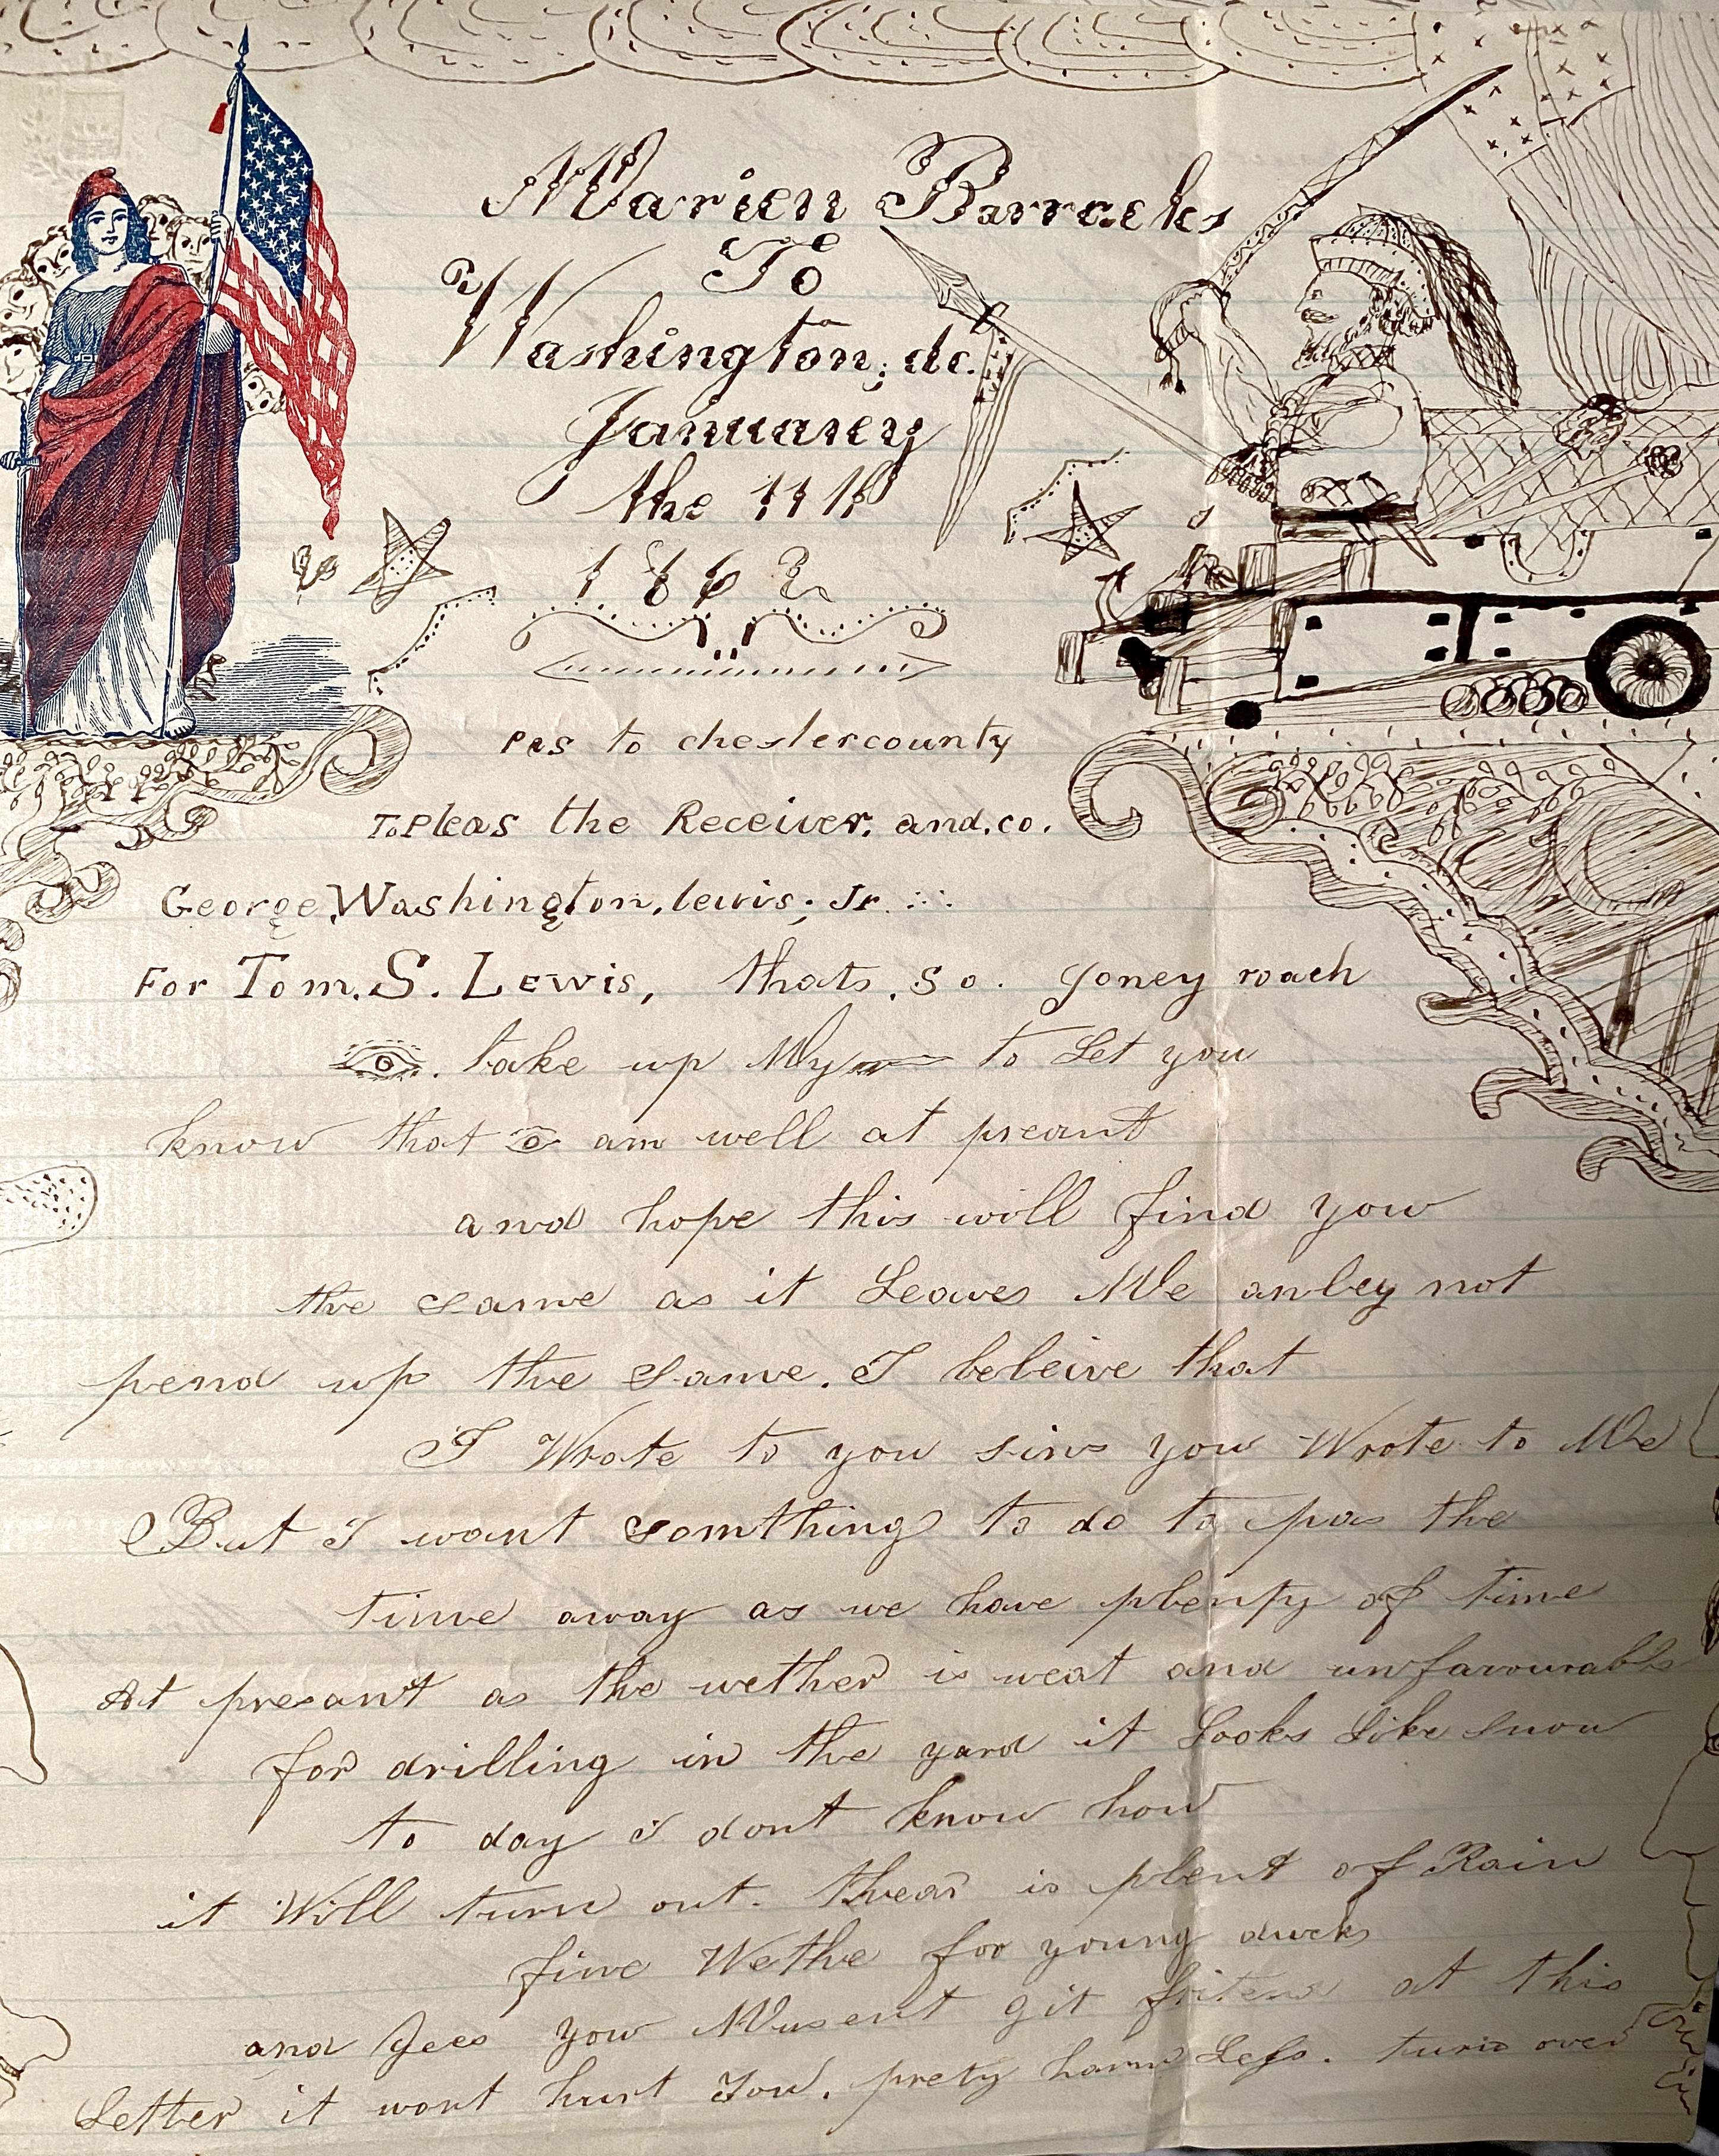 Marien Barracks
To
Washington, dc.
Januarey
the 11th
1862
pas to chestercounty
To Pleas the Receiver. and. co.
George, Washington, lewis; Jr.
For Tom. S. Lewis, thats. so. Joney roach
. take up My to Let you
know that am well at preant
and hope this will find you
the same as it Leaves Me anley not
pend up the same. I beleive that
I Wrote to you sins you Wrote to Me
But I want somthing to do to pas the
time away as we have plenty of time
At presant as the wether is weat and unfavourable
for drilling in the yard it Looks Like snow
to day I dont know how
it Will turn out. thear is plent of Rain
fine Wethe for young ducks
and Gees you Musent git at this
Letter it wont hurt You. prety harm Less. turn over